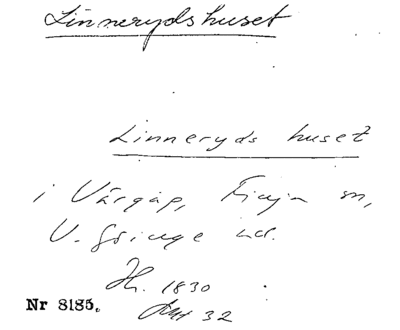 Linnerydshuset
Linneryds huset
i Vårgap, Finja sn,
V. Göinge hd.
Hf. 1830
Nr 8185. Ant 32